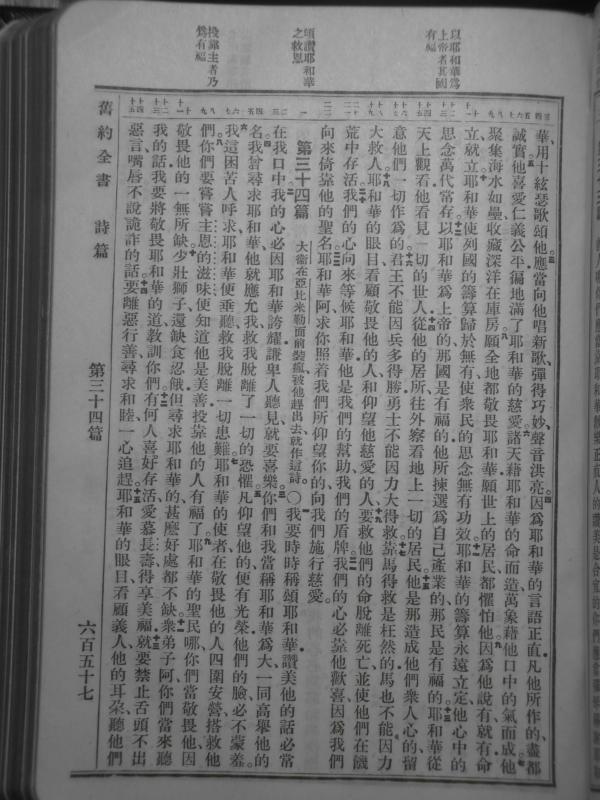 以耶和華爲
上帝者其國
有福
頌讚耶和華
之救恩
投靠主者乃
爲有福
華用十絃瑟歌頌他應當向他唱新歌彈得巧妙聲音洪亮因爲耶和華的言語正直凡他所作的盡都
誠實他喜愛仁義公平徧地滿了耶和華的慈愛諸天藉耶和華的命而造萬象藉他口中的氣而成他
聚集海水如壘收藏深洋在庫房願全地都敬畏耶和華願世上的居民都懼怕他因爲他說有就有命
立就立耶和華使列國的籌算歸於無有使衆民的思念無有功效耶和華的籌算永遠立定他心中的
思念萬代常存以耶和華爲上帝的那國是有福的他所揀選爲自己產業的那民是有福的耶和華從
天上觀看他看見一切的世人從他的居所往外察看地上一切的居民他是那造成他們衆人心的留
意他們一切作爲的君王不能因兵多得勝勇士不能因力大得救靠馬得救是枉然的馬也不能因力
大救人耶和華的眼目看顧敬畏他的人和仰望他慈愛的人要救他們的命脫離死亡並使他們在饑
荒中存活我們的心向來等候耶和華他是我們的幫助我們的盾牌我們的心必靠他歡喜因爲我們
向來倚靠他的聖名耶和華阿求你照着我們所仰望你的向我們施行慈愛
第三十四篇 大衞在亞比米勒面前裝瘋被他趕出去就作這詩〇我要時時稱頌耶和華讚美他的話必常
在我口中我的心必因耶和華誇耀謙卑人聽見就要喜樂你們和我當稱耶和華爲大一同高舉他的
名我曾尋求耶和華他就應允我救我脫離了一切的恐懼凡仰望他的便有光榮他們的臉必不蒙羞
我這困苦人呼求耶和華便垂聽救我脫離一切患難耶和華的使者在敬畏他的人四圍安營搭救他
們你們要嘗嘗主恩的滋味便知道他是美善投靠他的人有福了耶和華的聖民哪你們當敬畏他因
敬畏他的一無所缺少壯獅子還缺食忍餓但尋求耶和華的甚麽好處都不缺衆弟子阿你們當來聽
我的話我要將敬畏耶和華的道教訓你們有何人喜好存活愛慕長壽得享美福就要禁止舌頭不出
惡言嘴唇不說詭詐的話要離惡行善尋求和睦一心追趕耶和華的眼目看顧義人他的耳朶聽他們
舊約全書 詩篇 第三十四篇 六百五十七